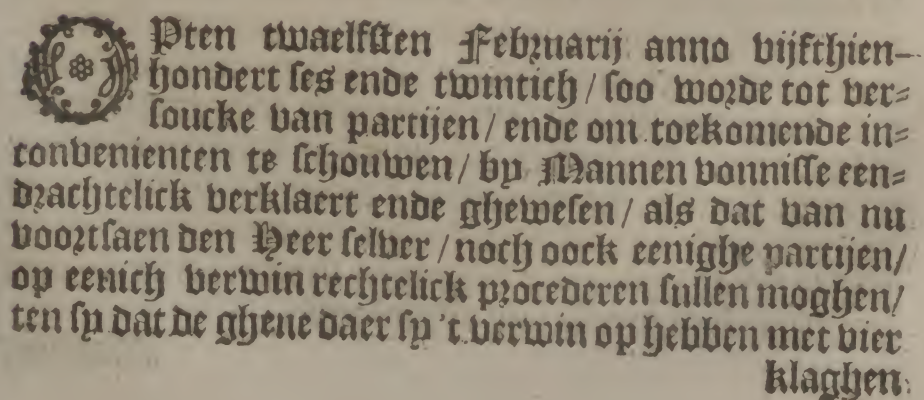 OPten twaelfsten Februarij anno vijfthien-
hondert ses ende twintich / soo worde tot ver-
soucke van partijen / ende om toekomende in-
convenienten te schouwen / by Mannen vonnisse een-
drachtelick verklaert ende ghewesen / als dat van nu
voortsaen den Heer selver / noch oock eenighe partijen /
op eenich verwin rechtelick procederen sullen moghen /
ten sy dat de ghene daer sy 't verwin op hebben met vier
klaghen